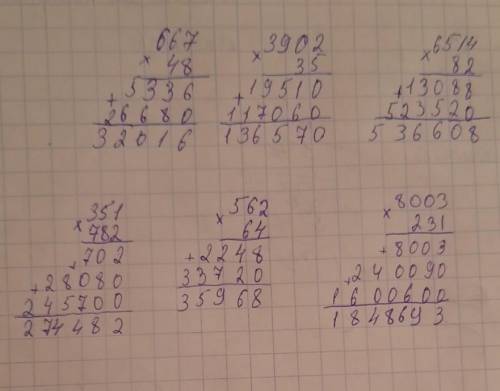 667
× 48
+ 5336
26680
32016
3902
× 35
+ 19510
117060
136570
6514
× 82
+ 13088
523520
536608
351
× 782
+ 702
+ 28080
245700
274482
562
× 64
+ 2248
33720
35968
8003
× 231
+ 8003
+ 240090
1600600
1848693